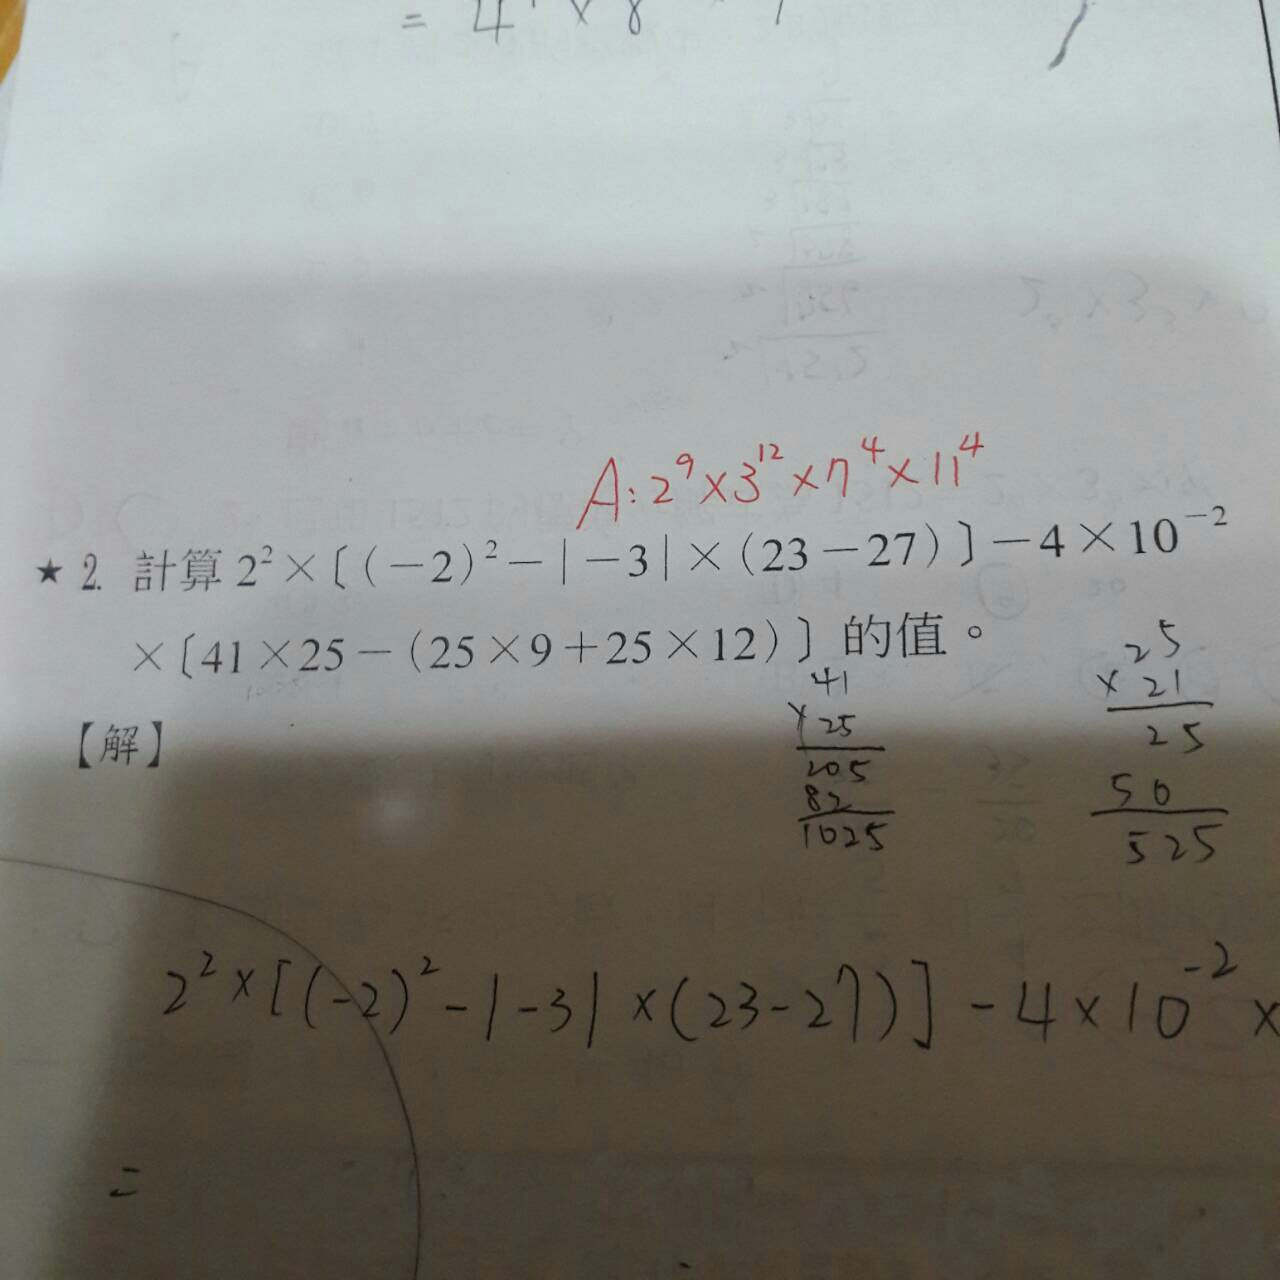 = 4
A: 2⁹×3¹²×7⁴×11⁴
★ 2. 計算 2²×〔(−2)²−|−3|×(23−27)〕−4×10⁻²
×〔41×25−(25×9+25×12)〕的值。
【解】
41
×25
205
82
1025
25
×21
25
50
525
2²×[(-2)²-|-3|×(23-27)]-4×10⁻²×
=